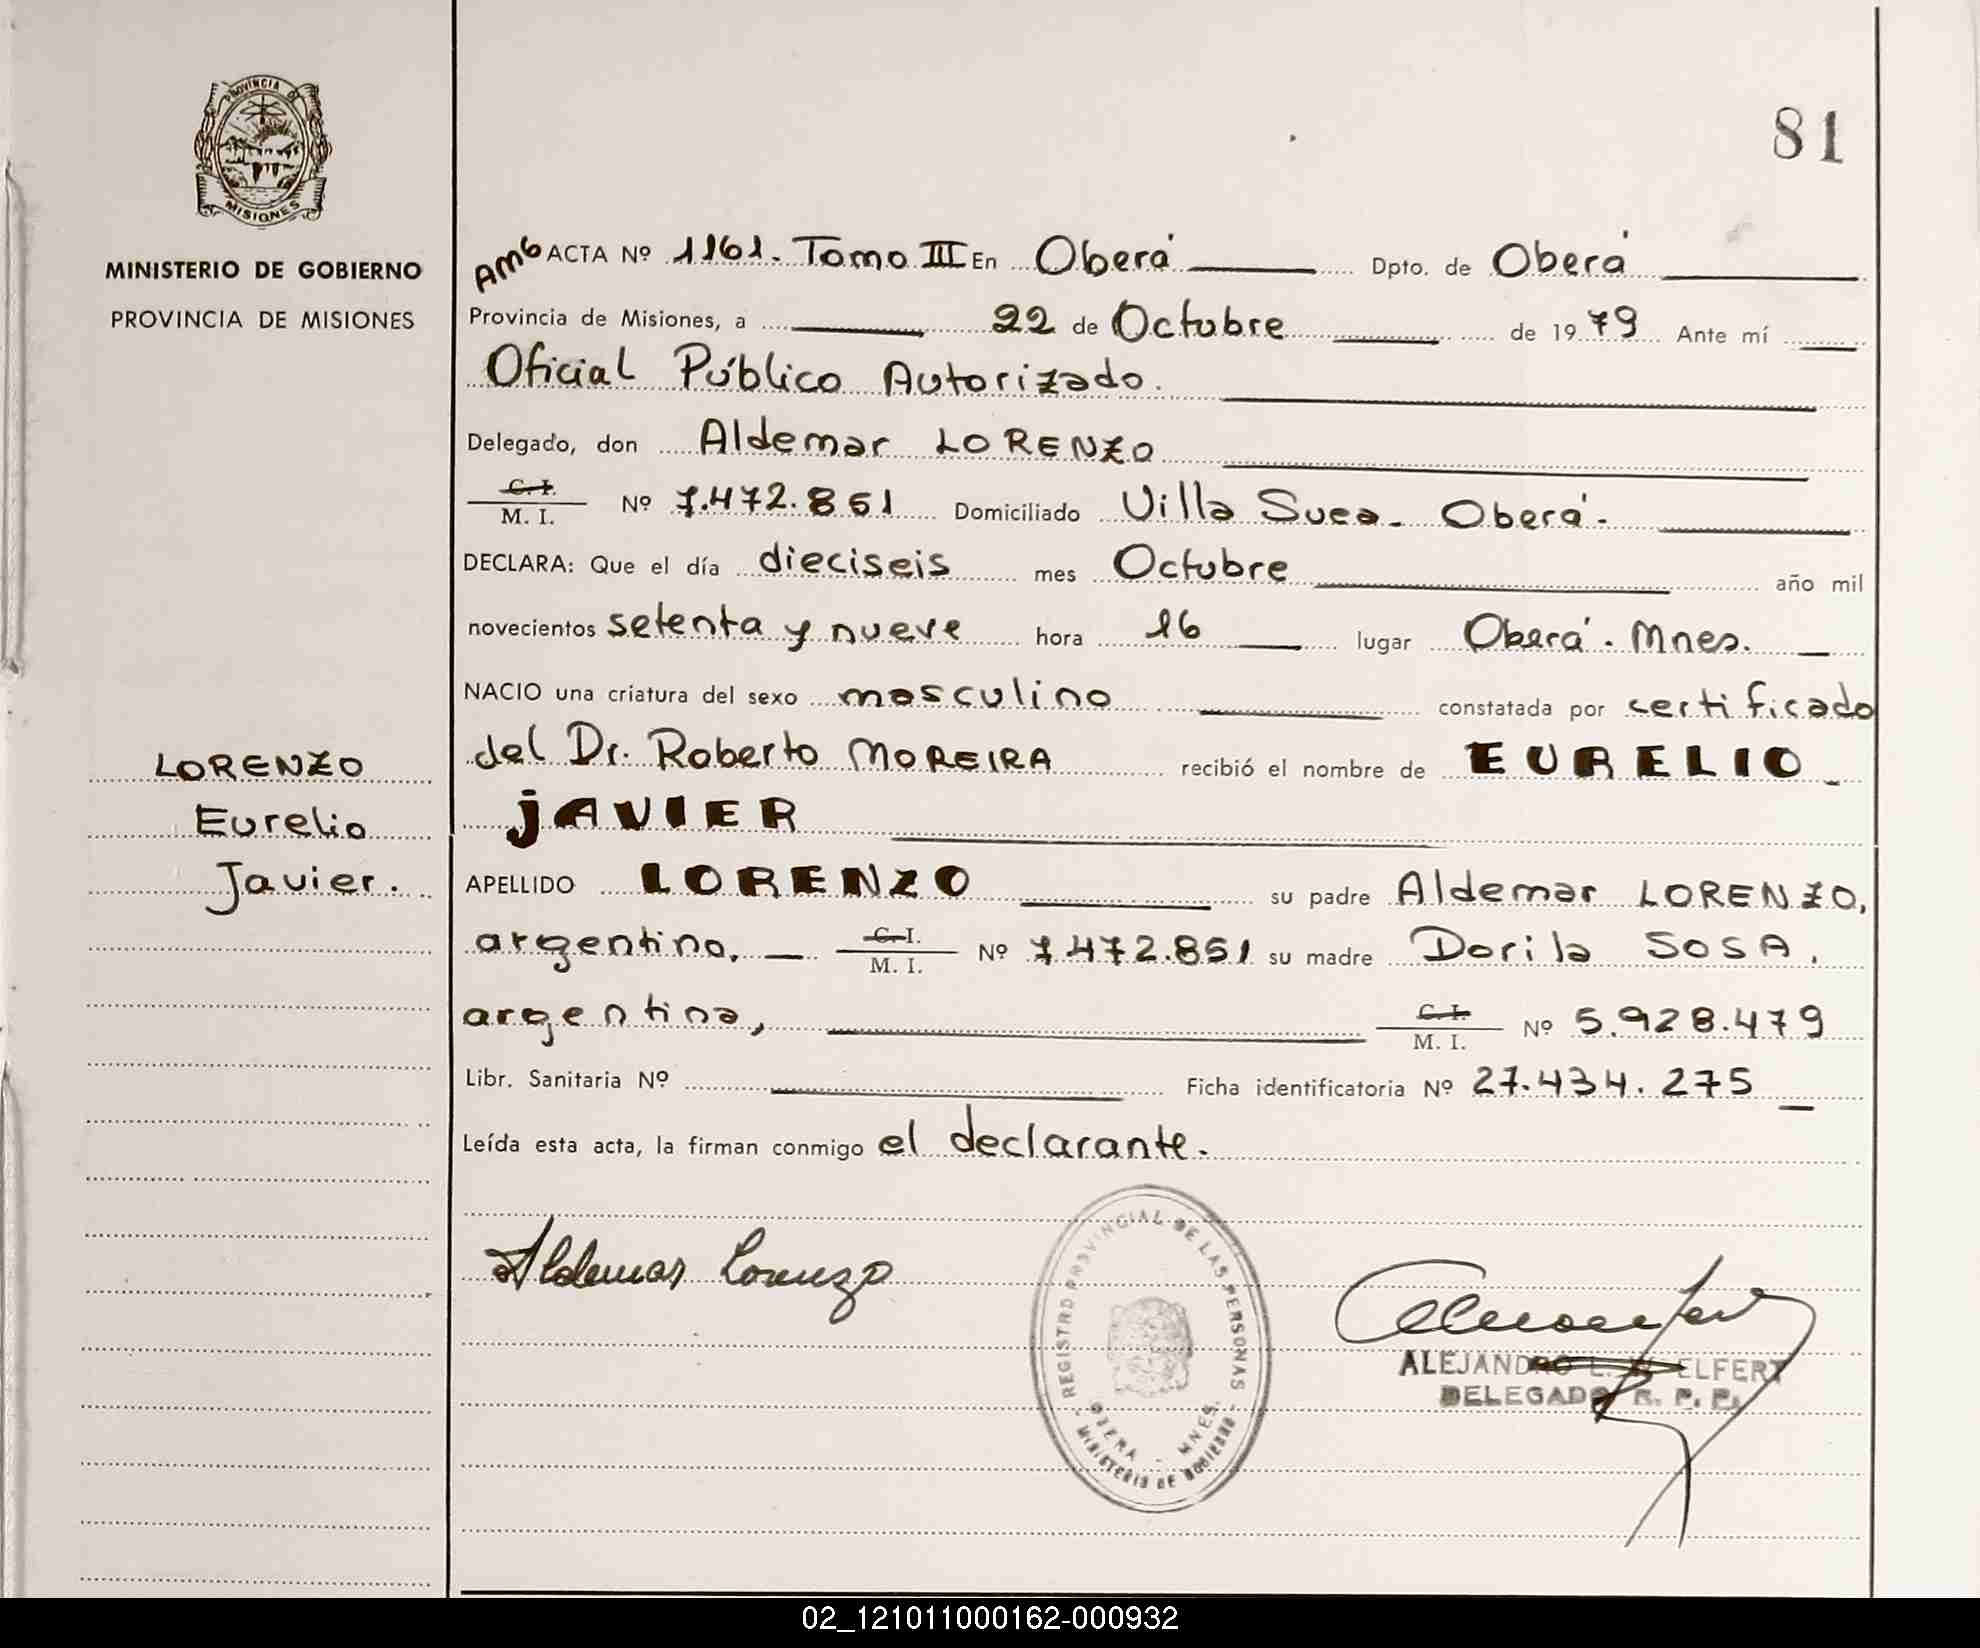 PROVINCIA DE
MISIONES
MINISTERIO DE GOBIERNO
PROVINCIA DE MISIONES
81
AMG ACTA Nº 1161. Tomo III En Oberá Dpto. de Oberá
Provincia de Misiones, a 22 de Octubre de 1979 Ante mí
Oficial Público Autorizado.
Delegado, don Aldemar LORENZO
C. I.
M. I. Nº 7.472.851 Domiciliado Villa Svea - Oberá -
DECLARA: Que el día dieciseis mes Octubre año mil
novecientos setenta y nueve hora 16 lugar Oberá - Mnes.
NACIO una criatura del sexo masculino constatada por certificado
del Dr. Roberto MOREIRA recibió el nombre de EURELIO
JAVIER
LORENZO
Eurelio
Javier.
APELLIDO LORENZO su padre Aldemar LORENZO,
argentino, C. I.
M. I. Nº 7.472.851 su madre Dorila SOSA,
argentina, C. I.
M. I. Nº 5.928.479
Libr. Sanitaria Nº Ficha identificatoria Nº 27.434.275
Leída esta acta, la firman conmigo el declarante.
Aldemar Lorenzo
REGISTRO PROVINCIAL DE LAS PERSONAS
OBERA - MNES.
- MINISTERIO DE GOBIERNO -
ALEJANDRO L. W ELFERT
DELEGADO R. P. P.
02_121011000162-000932